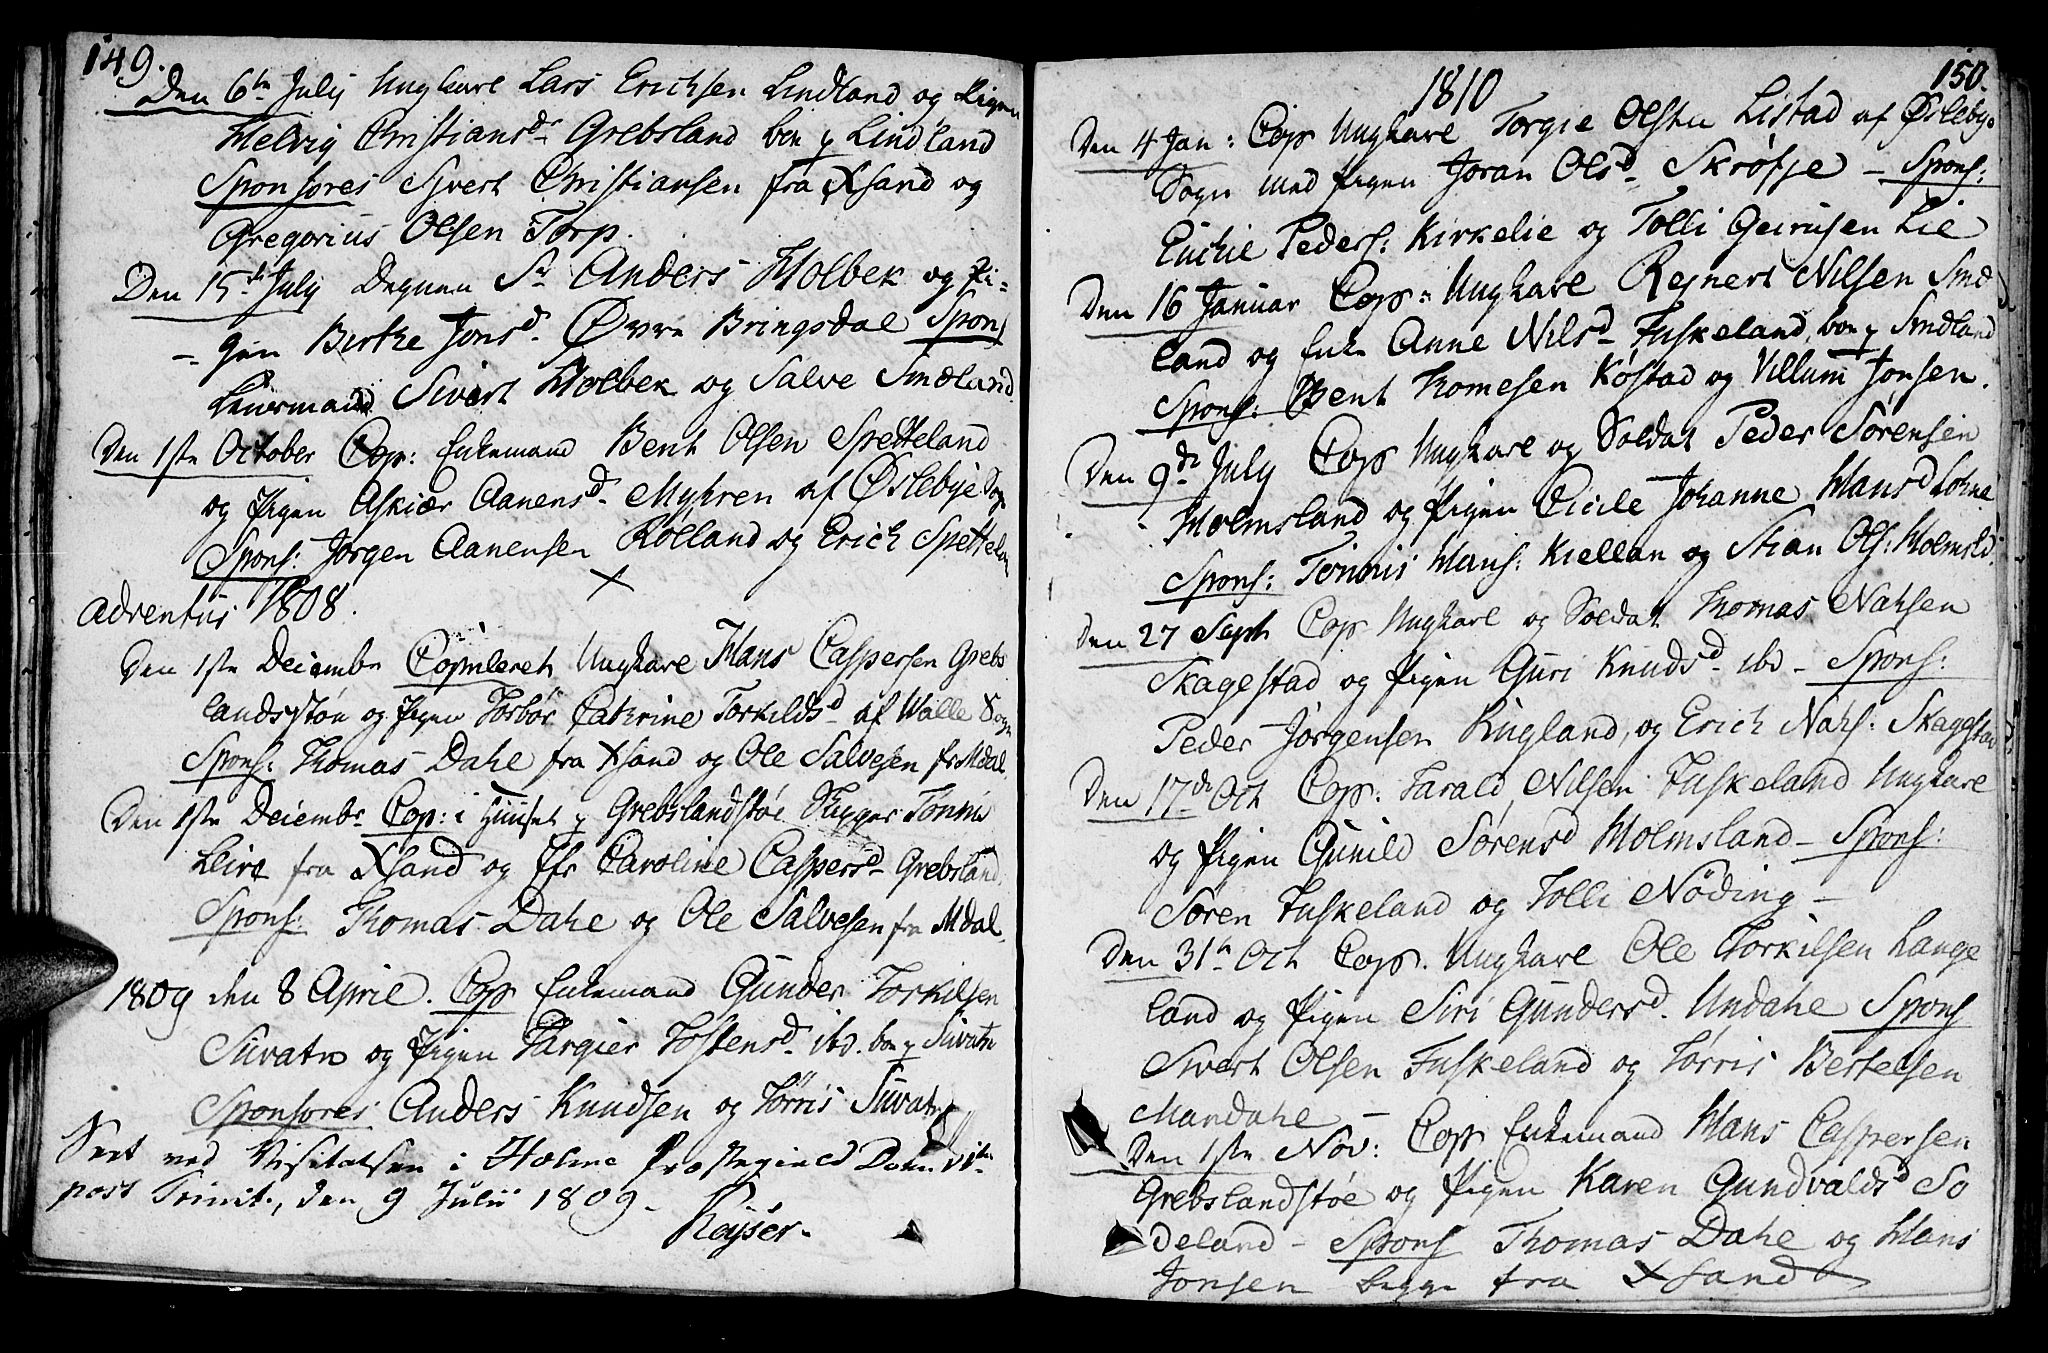 149.
Den 6te July Ungkarl Lars Erichsen Lindland og Pigen
Helvig Christiansd. Grebsland boe p Lindland
Sponsores Sjvert Christiansen fra Xsand og
Gregorius Olsen Torp.
Den 15de July Degnen Sr. Anders Holbek og Pi-
- gen Birthe Jonsd. Øvre Bringsdal Spons
Leinsmand Sivert Holbek og Salve Smedland.
Den 1ste October Cop: Enkemand Bent Olsen Spetteland
og Pigen Askiær Aanensd. Myhren af Øslebye Sogn
Spons: Jørgen Aanensen Rolland og Erich Spetteland
Adventus 1808.
Den 1ste Decembr Copuleret Ungkarl Hans Caspersen Grebs
landsstøe og Pigen Torbor Cathrine Torkildsd. af Walle Sogn
Spons: Thomas Dahe fra Xsand og Ole Salvesen fr Mdal
Den 1ste Decembr Cop: i Huuset p Grebslandstøe Skipper Tønnis
Leire fra Xsand og Jfr Caroline Caspersd. Grebsland.
Spons: Thomas Dahe og Ole Salvesen fra Mdal.
1809 den 8 April. Cop Enkemand Gunder Torkilsen
Suvatn og Pigen Targier Tostensd. ibd. boe p Suvatn
Sponsores Anders Knudsen og Tørris Suvatn
Seet ved Visitatsen i Holme Præstegield Dom: VI te
post Trinit., den 9 Julii 1809.
Keyser.
150.
1810
Den 4 Jan: Cop Ungkarl Torgie Olsen Listad af Øslebye
Sogn med Pigen Joran Olsd. Skrøfje - Spons:
Enchie Peders: Kirkelie og Tolli Geirusen Lie
Den 16 Januar Cop: Ungkarl Rejnert Nilsen Smed
land og Enke Anne Nilsd. Fuskeland, boe p Smedland
Spons: Bent Thomesen Køstad og Villum Jonsen.
Den 9de July Cop Ungkarl og Soldat Peder Sørensen
Holmsland og Pigen Cicile Johanne Hansd Lohne
Spons: Tønnis Hans: Kiellan og Stian Ols: Holmsld.
Den 27 Sept Cop Ungkarl og Soldat Thomas Nahsen
Skagestad og Pigen Guri Knudsd. ibd - Spons:
Peder Jørgensen Rugland, og Erich Nahs: Skagestad
Den 17de Oct Cop: Tarald Nilsen Fuskeland Ungkarl
og Pigen Gunild Sørensd Holmsland - Spons:
Søren Fuskeland og Tolli Nøding -
Den 31te Oct Cop. Ungkarl Ole Torkilsen Lange
land og Pigen Siri Gundersd. Undahe Spons
Sivert Olsen Fuskeland og Tørris Bertelsen
Mandahe -
Den 1ste Nov: Cop Enkemand Hans Caspersen
Grebslandstøe og Pigen Karen Gundvaldsd So
deland - Spons Thomas Dahe og Hans
Jonsen begge fra Xsand